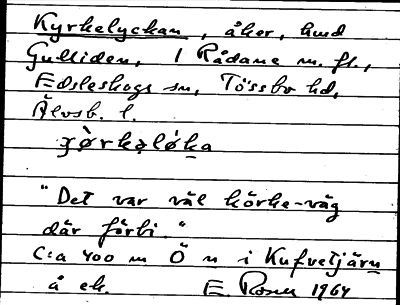 Kyrkelyckan, åker, hmd
Gulliden, 1 Rådane m. fl.,
Edsleskogs sn, Tössbo hd,
Älvsb. l.
"Det var väl körke-väg
där förbi."
C:a 400 m Ö n i Kufvetjärn
å ek. E 1964